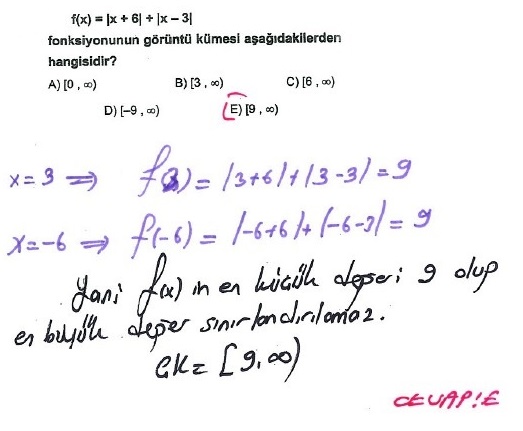 f(x) = |x + 6| + |x – 3|
fonksiyonunun görüntü kümesi aşağıdakilerden
hangisidir?
A) [0 , ∞) B) [3 , ∞) C) [6 , ∞)
D) [–9 , ∞) E) [9 , ∞)
x = 3 ⇒ f(3) = |3+6|+|3-3| = 9
x = -6 ⇒ f(-6) = |-6+6|+|-6-3| = 9
Yani f(x) in en küçük değeri 9 olup
en büyük değer sınırlandırılamaz.
GK = [9, ∞)
CEVAP: E